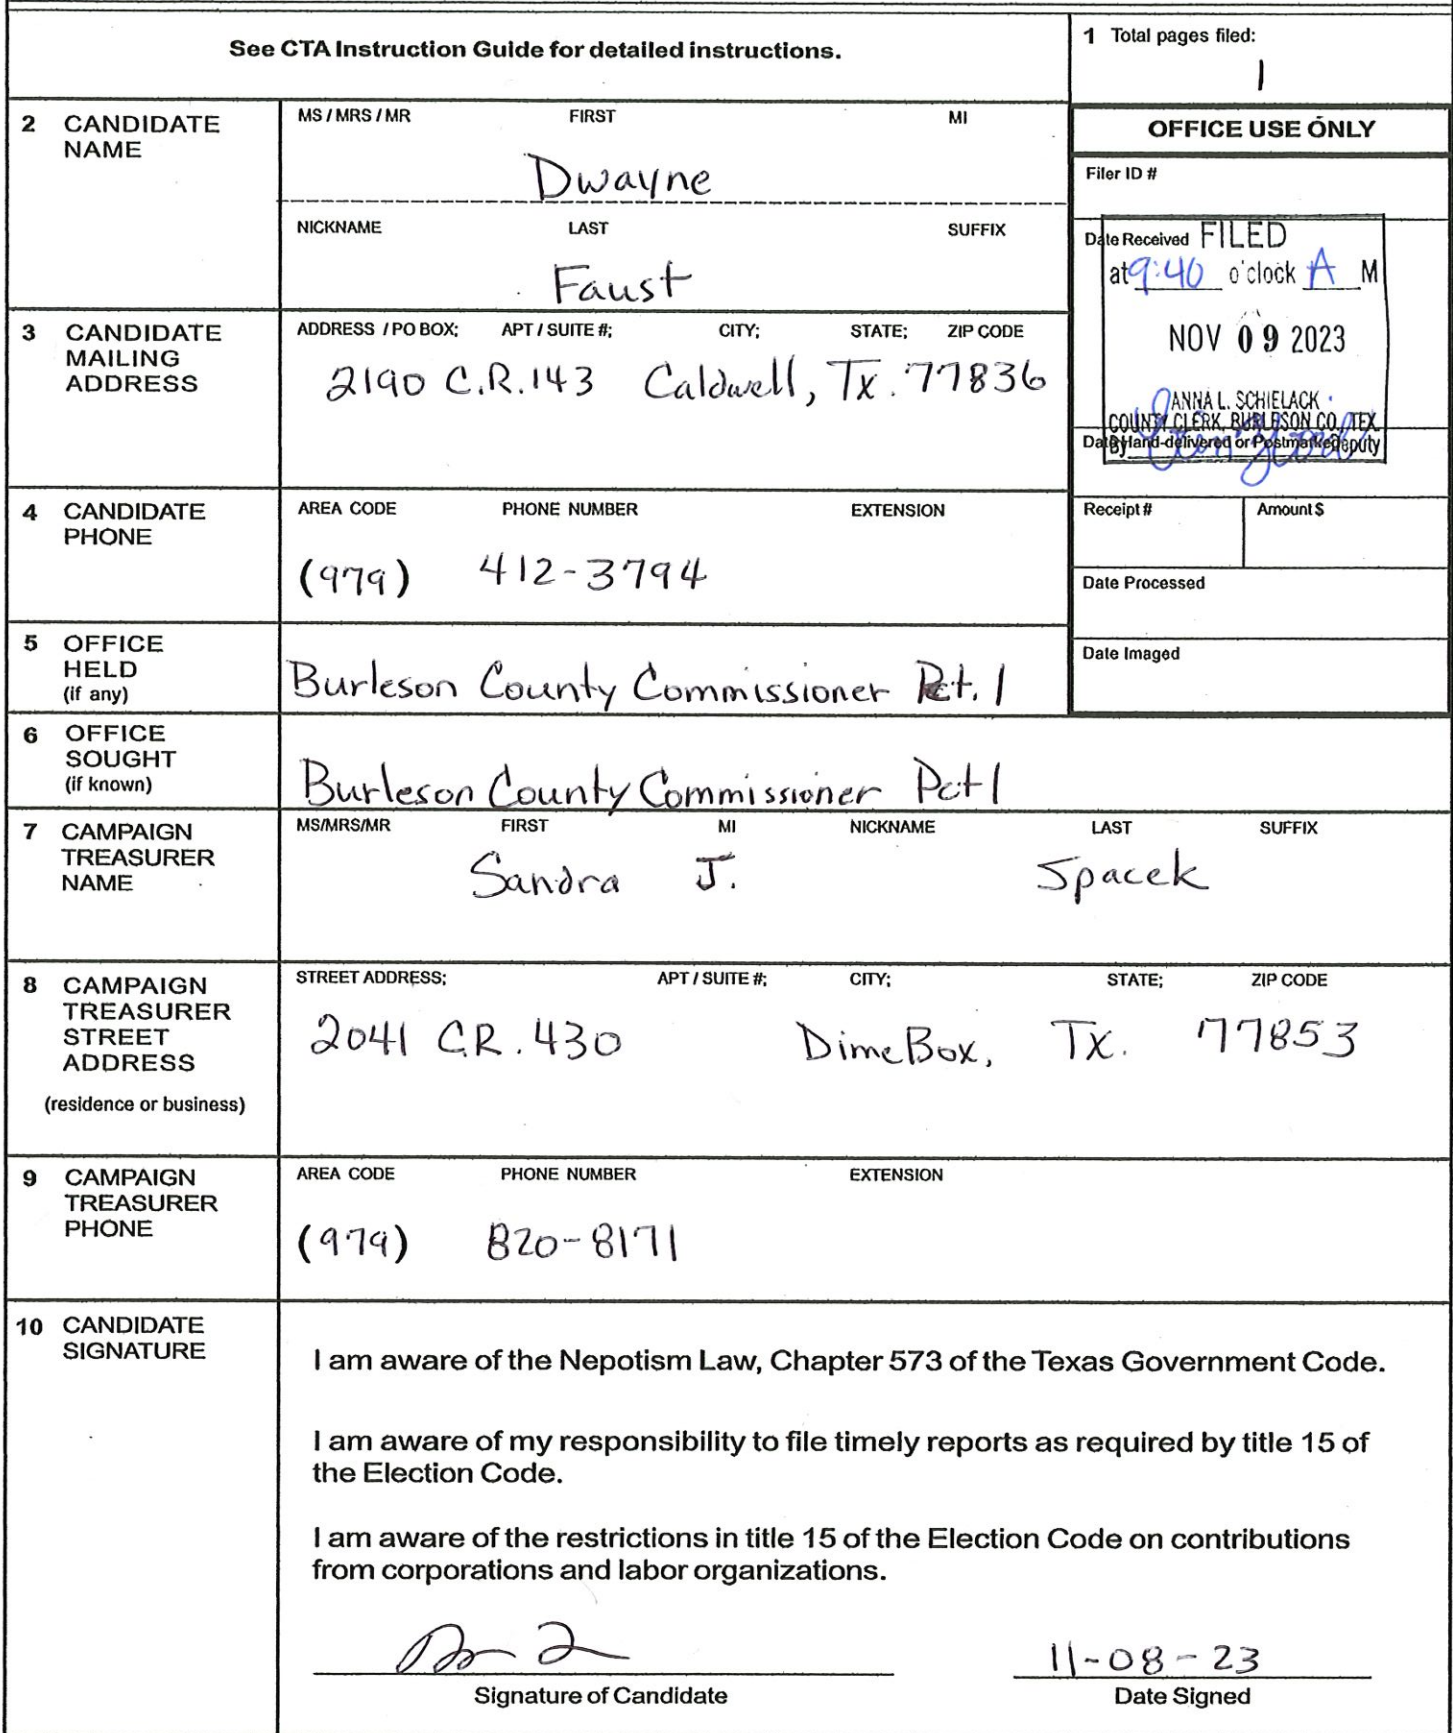 See CTA Instruction Guide for detailed instructions.
1 Total pages filed:
1
2 CANDIDATE NAME
MS / MRS / MR FIRST MI
Dwayne
NICKNAME LAST SUFFIX
Faust
OFFICE USE ONLY
Filer ID #
Date Received FILED
at 9:40 o'clock A M
NOV 09 2023
ANNA L. SCHIELACK
COUNTY CLERK, BURLESON CO., TEX.
By Deputy
Date Hand-delivered or Postmarked
3 CANDIDATE MAILING ADDRESS
ADDRESS / PO BOX; APT / SUITE #; CITY; STATE; ZIP CODE
2190 C.R. 143 Caldwell, Tx. 77836
Receipt # Amount $
Date Processed
Date Imaged
4 CANDIDATE PHONE
AREA CODE PHONE NUMBER EXTENSION
(979) 412-3794
5 OFFICE HELD (if any)
Burleson County Commissioner Pct. 1
6 OFFICE SOUGHT (if known)
Burleson County Commissioner Pct 1
7 CAMPAIGN TREASURER NAME
MS/MRS/MR FIRST MI NICKNAME LAST SUFFIX
Sandra J. Spacek
8 CAMPAIGN TREASURER STREET ADDRESS (residence or business)
STREET ADDRESS; APT / SUITE #; CITY; STATE; ZIP CODE
2041 C.R. 430 Dime Box, Tx. 77853
9 CAMPAIGN TREASURER PHONE
AREA CODE PHONE NUMBER EXTENSION
(979) 820-8171
10 CANDIDATE SIGNATURE
I am aware of the Nepotism Law, Chapter 573 of the Texas Government Code.
I am aware of my responsibility to file timely reports as required by title 15 of
the Election Code.
I am aware of the restrictions in title 15 of the Election Code on contributions
from corporations and labor organizations.
11-08-23
Signature of Candidate Date Signed